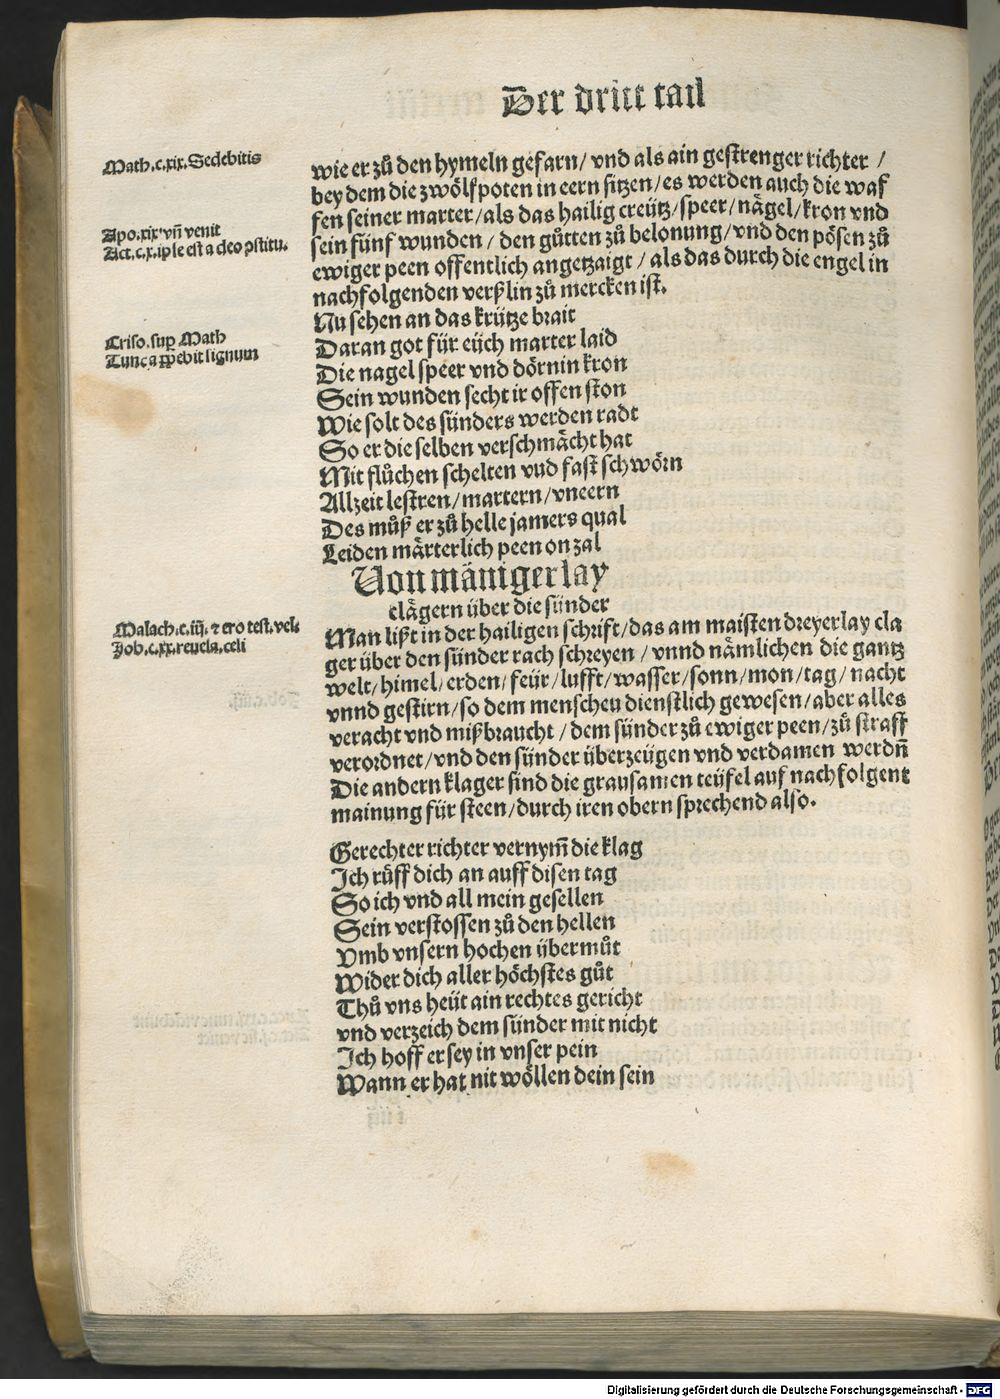 Der dritt tail
Math.c.xix.Sedebitis
wie er zů den hymeln gefarn/ vnd als ain gestrenger richter /
bey dem die zwölfpoten in eern sitzen/es werden auch die waf
fen seiner marter/als das hailig creütz/speer/nägel/kron vnd
Apo.xix.vñ venit
Act.c.x.ipse est a deo ꝯstitu.
sein fünf wunden / den gůtten zů belonung/vnd den pösen zů
ewiger peen offentlich angetzaigt / als das durch die engel in
nachfolgenden verßlin zů mercken ist.
Nu sehen an das krütze brait
Criso.suꝑ Math
Tunc apꝑebit signum
Daran got für eüch marter laid
Die nagel speer vnd dörnin kron
Sein wunden secht ir offen ston
Wie solt des sünders werden radt
So er die selben verschmächt hat
Mit flůchen schelten vnd fast schwörn
Allzeit lestren/martern/vneern
Des můß er zů helle jamers qual
Leiden märterlich peen on zal
Von mäniger lay
clägern über die sünder
Malach.c.iiij. ⁊ ero test.vel.
Job.c.xx.reuela.celi
Man lißt in der hailigen schrift/das am maisten dreyerlay cla
ger über den sünder rach schreyen / vnnd nämlichen die gantz
welt/himel/erden/feür/lufft/wasser/sonn/mon/tag/nacht
vnnd gestirn/so dem menschen dienstlich gewesen/aber alles
veracht vnd mißbraucht / dem sünder zů ewiger peen/zů straff
verordnet/vnd den sünder überzeügen vnd verdamen werdñ
Die andern klager sind die grausamen teüfel auf nachfolgent
mainung für steen/durch iren obern sprechend also.
Gerechter richter vernym̃ die klag
Ich rüff dich an auff disen tag
So ich vnd all mein gesellen
Sein verstossen zů den hellen
Vmb vnsern hochen übermůt
Wider dich aller höchstes gůt
Thů vns heüt ain rechtes gericht
vnd verzeich dem sünder mit nicht
Ich hoff er sey in vnser pein
Wann er hat nit wöllen dein sein
Digitalisierung gefördert durch die Deutsche Forschungsgemeinschaft - DFG